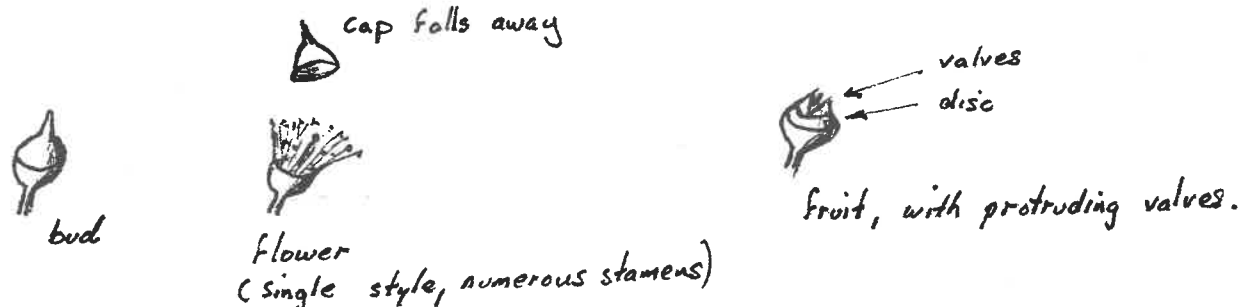 cap falls away
valves
disc
bud
flower
(single style, numerous stamens)
fruit, with protruding valves.